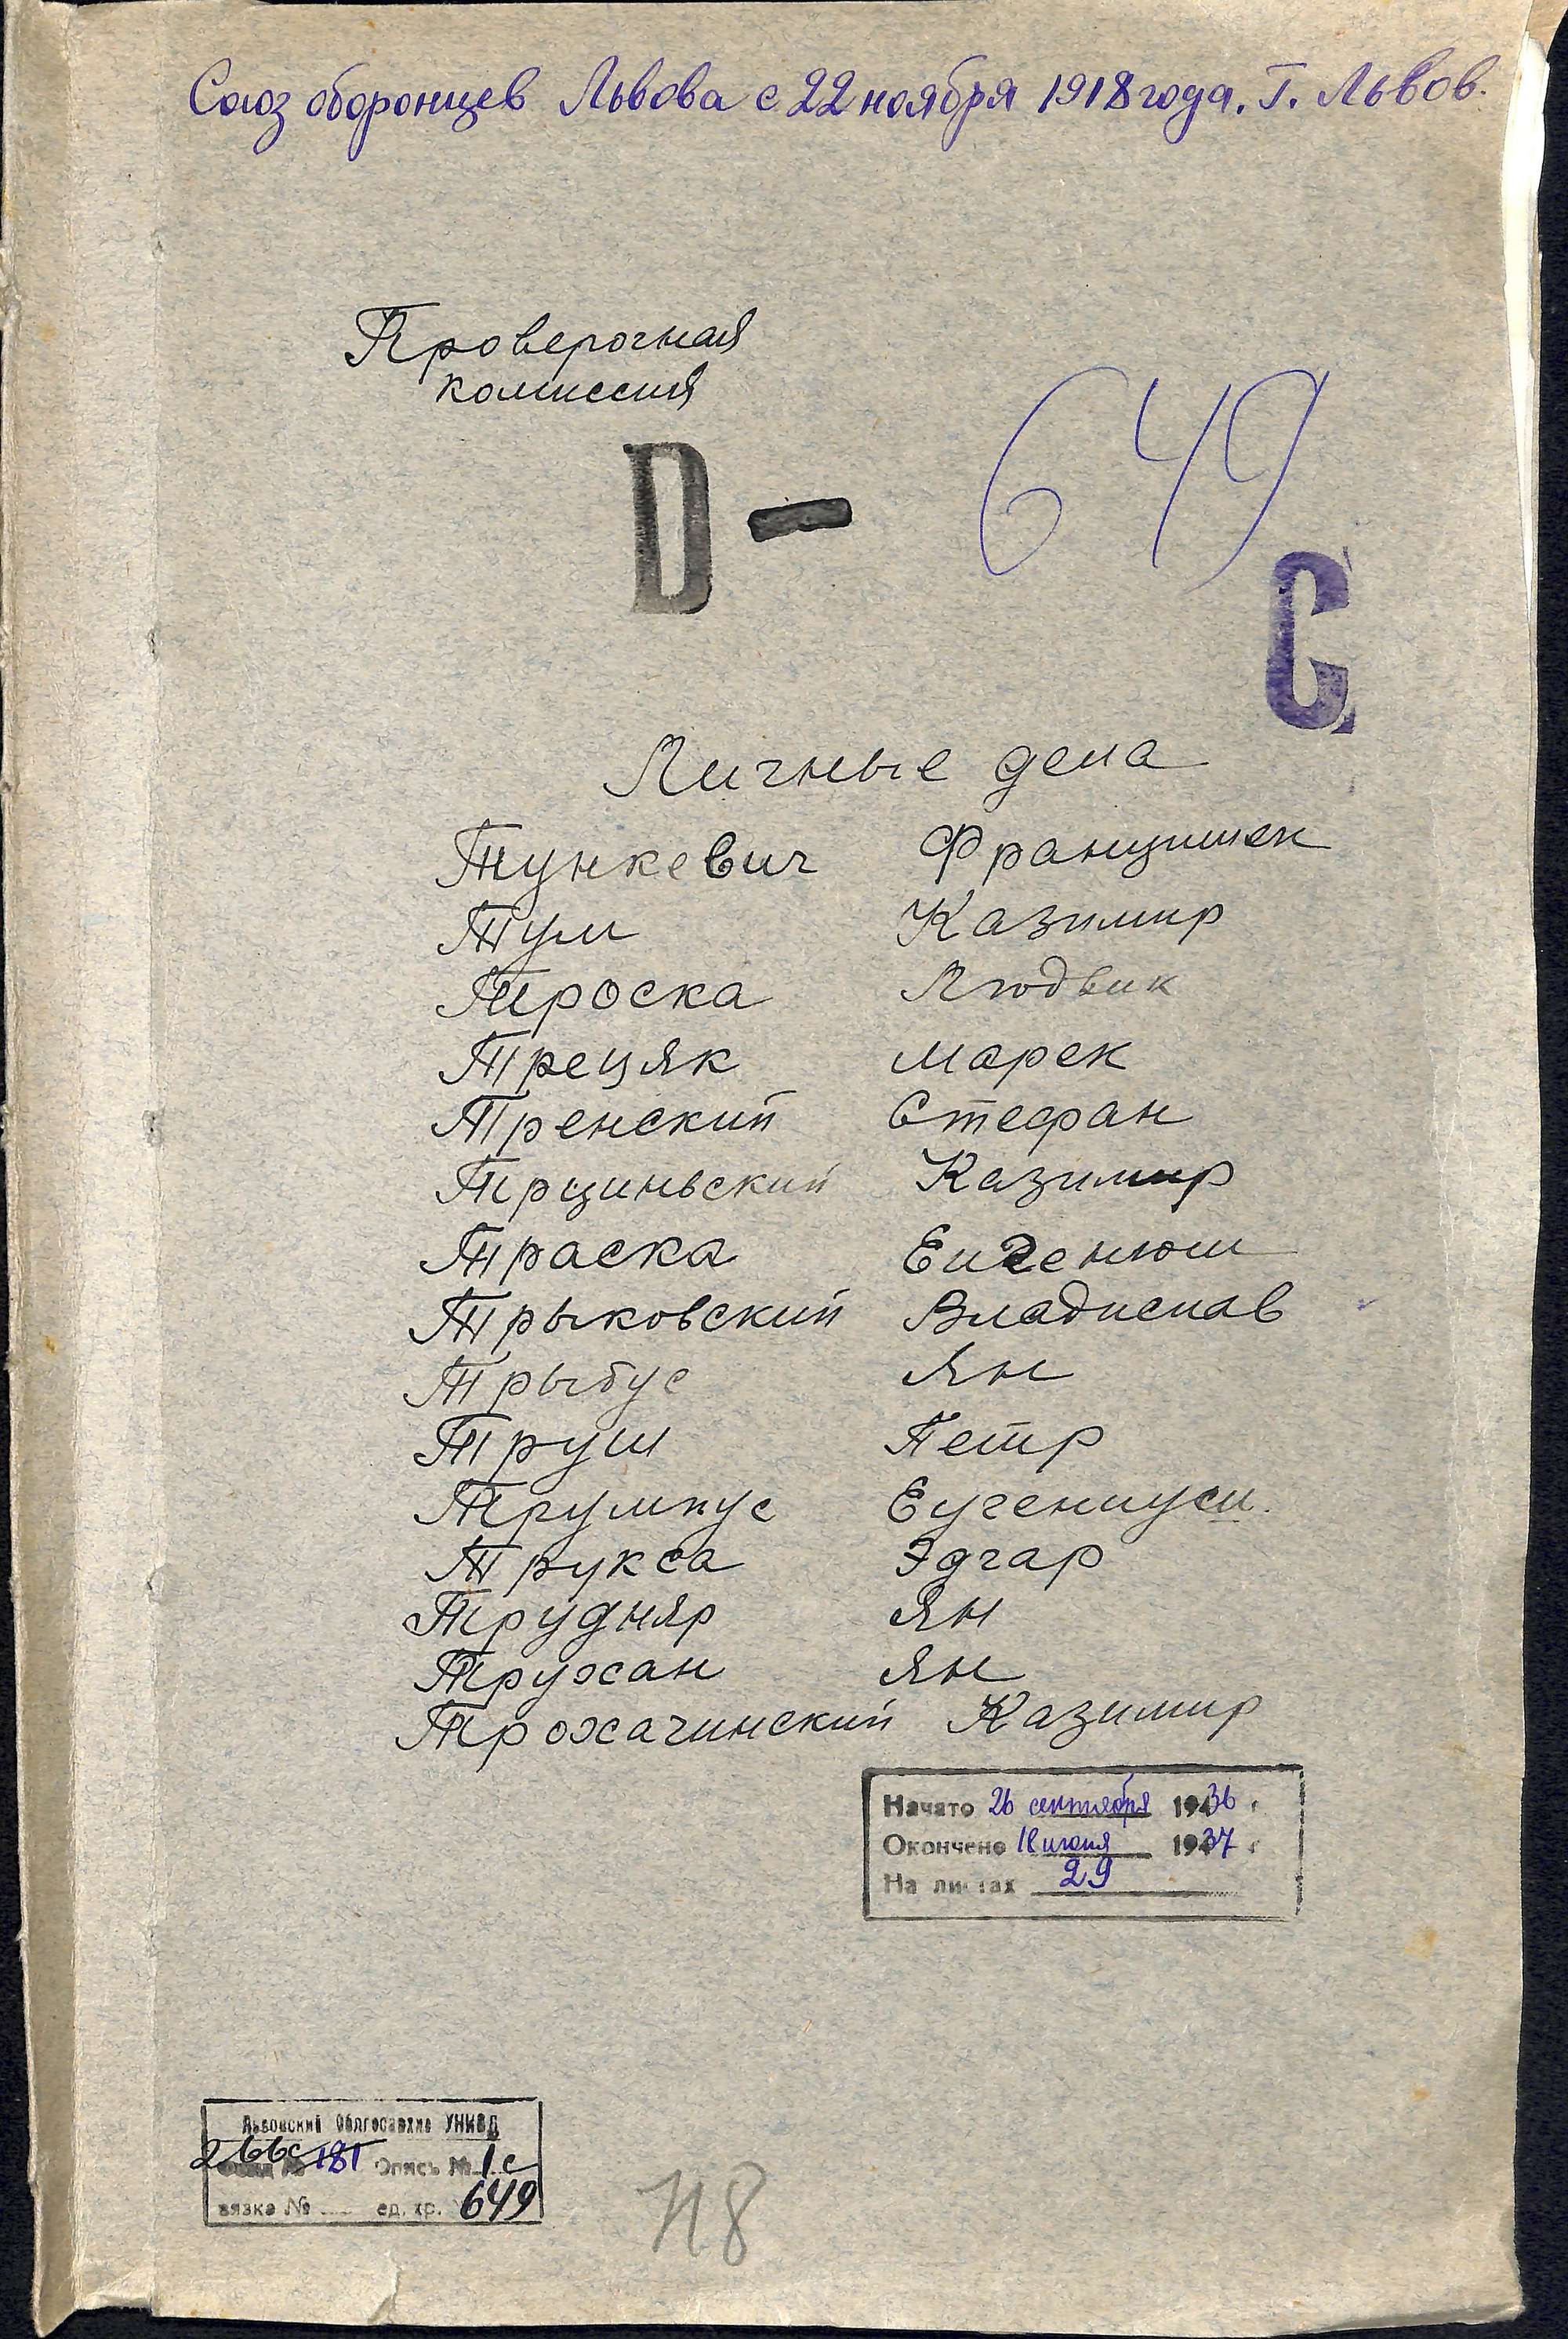 Союз оборонцев Львова с 22 ноября 1918 года. г. Львов.
Проверочная
комиссия
D - 649
C
Личные дела
Тункевич Францишек
Тум Казимир
Троска Людвик
Трецяк Марек
Тренский Стефан
Трциньский Казимир
Траска Еигенюш
Трыковский Владислав
Трыбус Ян
Труш Петр
Трумпус Еугениуси.
Трукса Эдгар
Трудняр Ян
Трухан Ян
Трохачинский Казимир
Начато 26 сентября 1936 г
Окончено 18 июня 1937 г
На листах 29
Львовский Облгосархив УНКВД
266с 181 Опись № 1с
вязка № ед. хр. 649
118